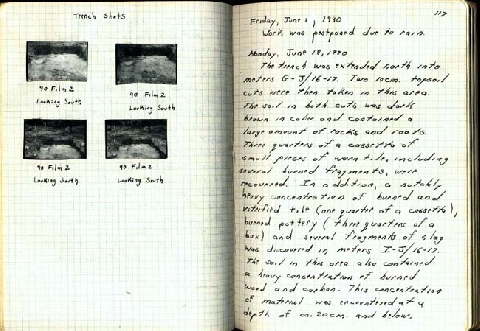 Trench Shots
90 Film 2
Looking South
90 Film 2
Looking South
90 Film 2
Looking South
90 Film 2
Looking South
117
Friday, June 1, 1990
Work was postponed due to rain.
Monday, June 18, 1990
The trench was extended north into
meters G-J/16-17. Two 10cm. topsoil
cuts were then taken in this area.
The soil in both cuts was dark
brown in color and contained a
large amount of rocks and roots.
Three quarters of a cassetta of
small pieces of worn tile, including
several burned fragments, were
recovered. In addition, a notably
heavy concentration of burned and
vitrified tile (one quarter of a cassetta),
burned pottery (three quarters of a
box) and several fragments of slag
was discovered in meters I-J/16-17.
The soil in this area also contained
a heavy concentration of burned
wood and carbon. This concentration
of material was encountered at a
depth of ca. 20cm. and below.